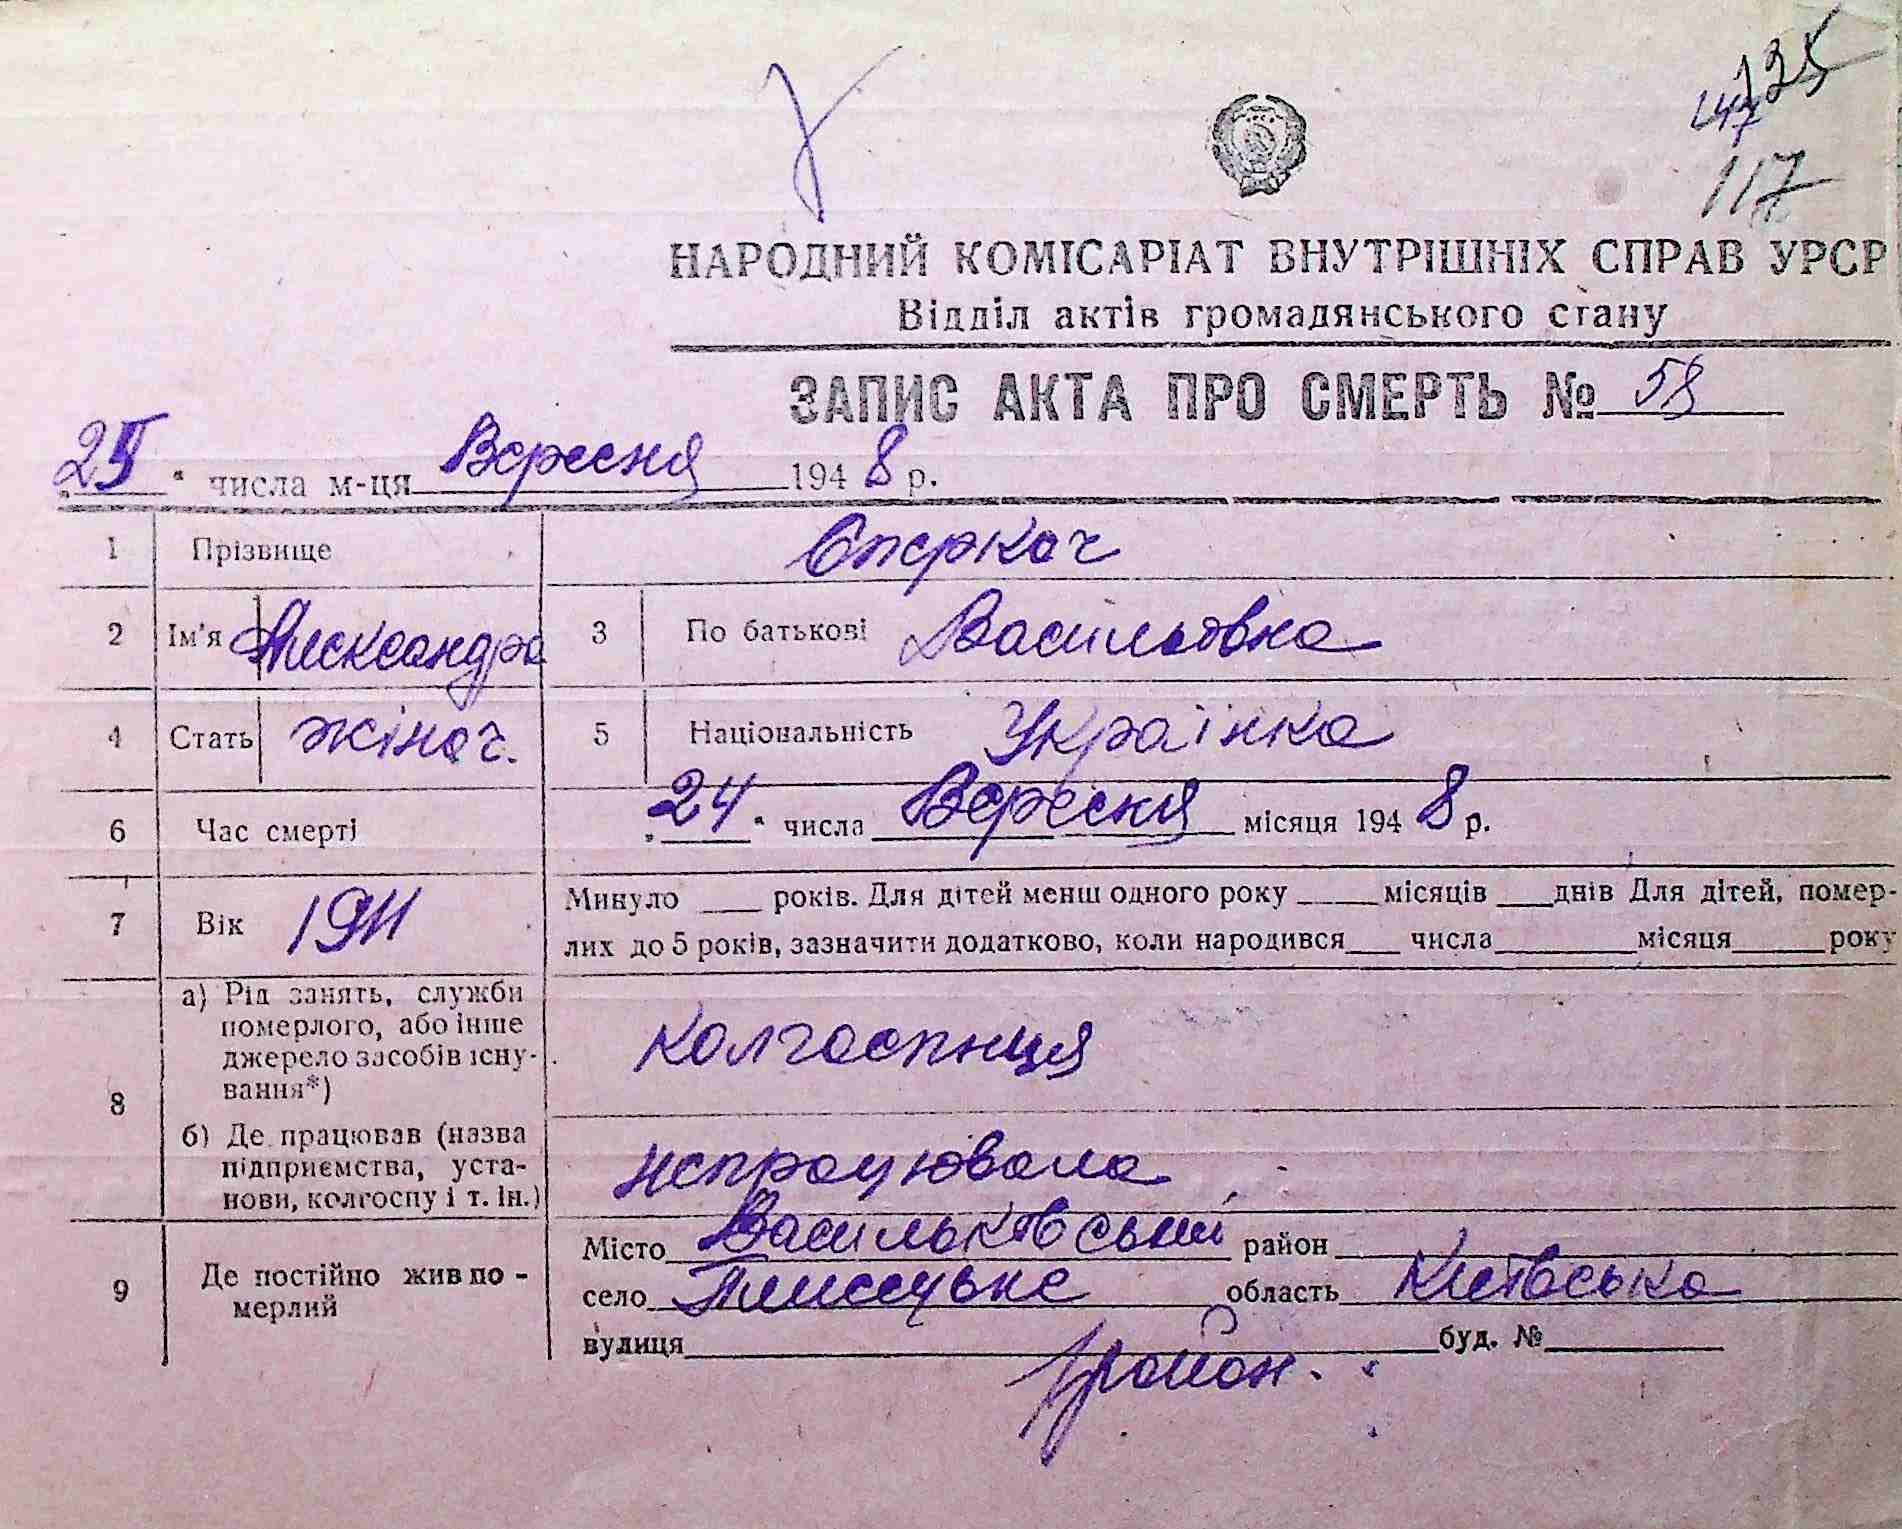 125
147
117
НАРОДНИЙ КОМІСАРІАТ ВНУТРІШНІХ СПРАВ УРСР
Відділ актів громадянського стану
ЗАПИС АКТА ПРО СМЕРТЬ № 58
„25“ числа м-ця Вересня 1948 р.
1 Прізвище Оперкач
2 Ім'я Александра 3 По батькові Васильовна
4 Стать жіноч. 5 Національність Українка
6 Час смерті „24“ числа Вересня місяця 1948 р.
7 Вік 1911 Минуло ___ років. Для дітей менш одного року ___ місяців ___ днів Для дітей, помер-
лих до 5 років, зазначити додатково, коли народився ___ числа ___ місяця ___ року
8 а) Рід занять, служби
померлого, або інше
джерело засобів існу-
вання*)
колгоспниця
б) Де працював (назва
підприємства, уста-
нови, колгоспу і т. ін.)
непрацювала
9 Де постійно жив по-
мерлий
Місто Васильковський район
село Плисецьке область Київська
вулиця буд. №
район.